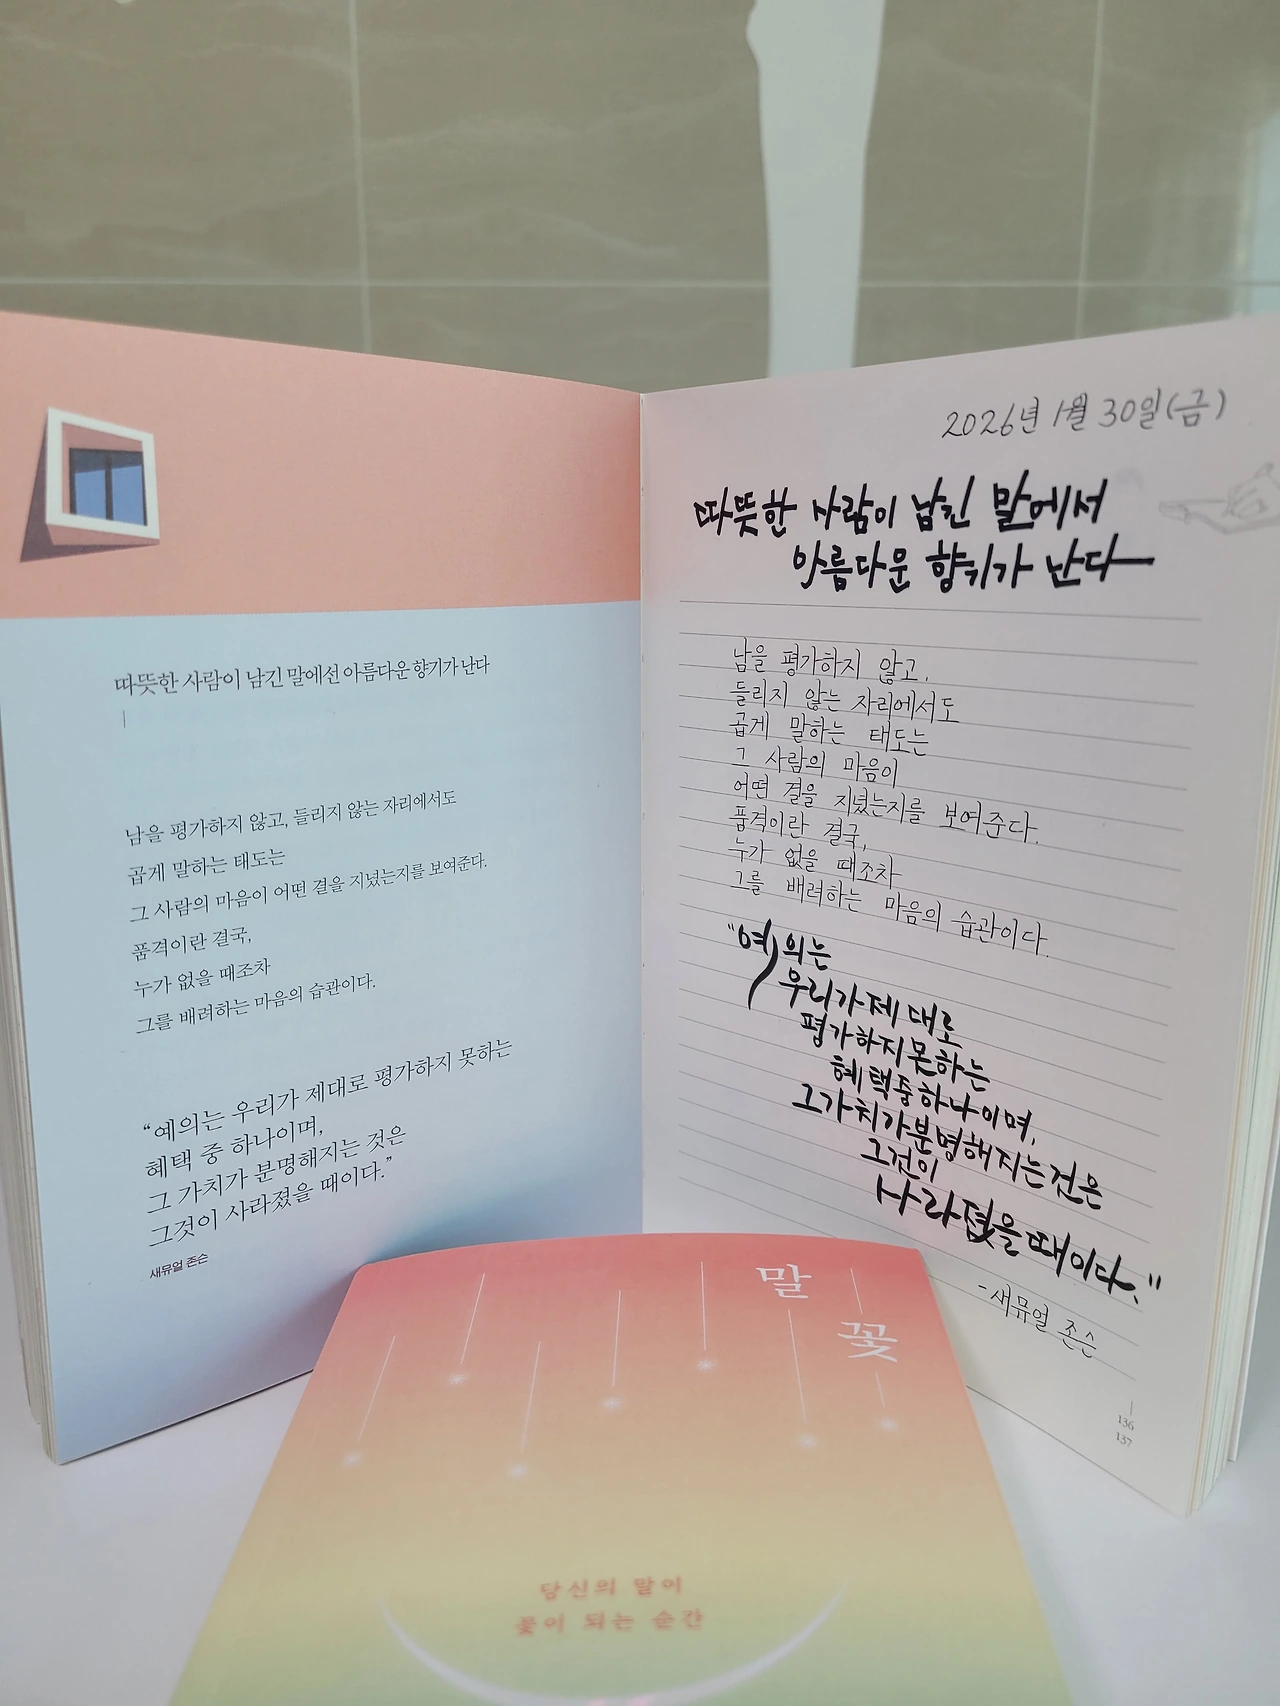 따뜻한 사람이 남긴 말에선 아름다운 향기가 난다
남을 평가하지 않고, 들리지 않는 자리에서도
곱게 말하는 태도는
그 사람의 마음이 어떤 결을 지녔는지를 보여준다.
품격이란 결국,
누가 없을 때조차
그를 배려하는 마음의 습관이다.
“예의는 우리가 제대로 평가하지 못하는
혜택 중 하나이며,
그 가치가 분명해지는 것은
그것이 사라졌을 때이다.”
새뮤얼 존슨
2026년 1월 30일(금)
따뜻한 사람이 남긴 말에서
아름다운 향기가 난다
남을 평가하지 않고,
들리지 않는 자리에서도
곱게 말하는 태도는
그 사람의 마음이
어떤 결을 지녔는지를 보여준다.
품격이란 결국,
누가 없을 때조차
그를 배려하는 마음의 습관이다.
"예의는
우리가 제대로
평가하지 못하는
혜택 중 하나이며,
그 가치가 분명해지는 것은
그것이
사라졌을 때이다."
- 새뮤얼 존슨
136
137
말
꽃
당신의 말이
꽃이 되는 순간